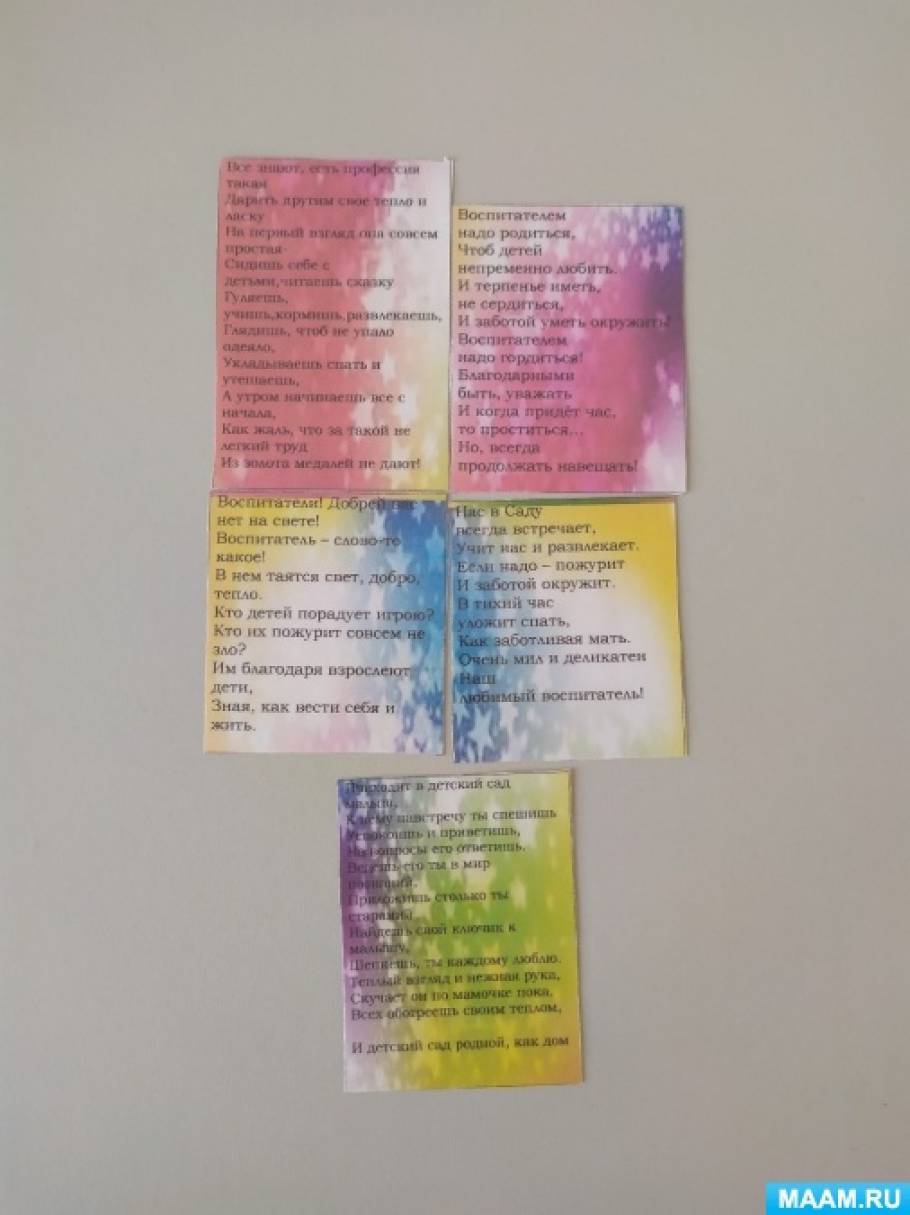 Все знают, есть профессия
такая
Дарить другим свое тепло и
ласку
На первый взгляд она совсем
простая-
Сидишь себе с
детьми,читаешь сказку
Гуляешь,
учишь,кормишь,развлекаешь,
Глядишь, чтоб не упало
одеяло,
Укладываешь спать и
утешаешь,
А утром начинаешь все с
начала,
Как жаль, что за такой не
легкий труд
Из золота медалей не дают!
Воспитателем
надо родиться,
Чтоб детей
непременно любить.
И терпенье иметь,
не сердиться,
И заботой уметь окружить!
Воспитателем
надо гордиться!
Благодарными
быть, уважать
И когда придёт час,
то проститься...
Но, всегда
продолжать навещать!
Воспитатели! Добрей вас
нет на свете!
Воспитатель – слово-то
какое!
В нем таятся свет, добро,
тепло.
Кто детей порадует игрою?
Кто их пожурит совсем не
зло?
Им благодаря взрослеют
дети,
Зная, как вести себя и
жить.
Нас в Саду
всегда встречает,
Учит нас и развлекает.
Если надо – пожурит
И заботой окружит.
В тихий час
уложит спать,
Как заботливая мать.
Очень мил и деликатен
Наш
любимый воспитатель!
Приходит в детский сад
малыш,
К нему навстречу ты спешишь
Успокоишь и приветишь,
На вопросы его ответишь.
Ведешь его ты в мир
познаний,
Приложишь столько ты
стараний
Найдешь свой ключик к
малышу,
Шепнешь, ты каждому люблю.
Теплый взгляд и нежная рука,
Скучает он по мамочке пока.
Всех обогреешь своим теплом,
И детский сад родной, как дом
MAAM.RU